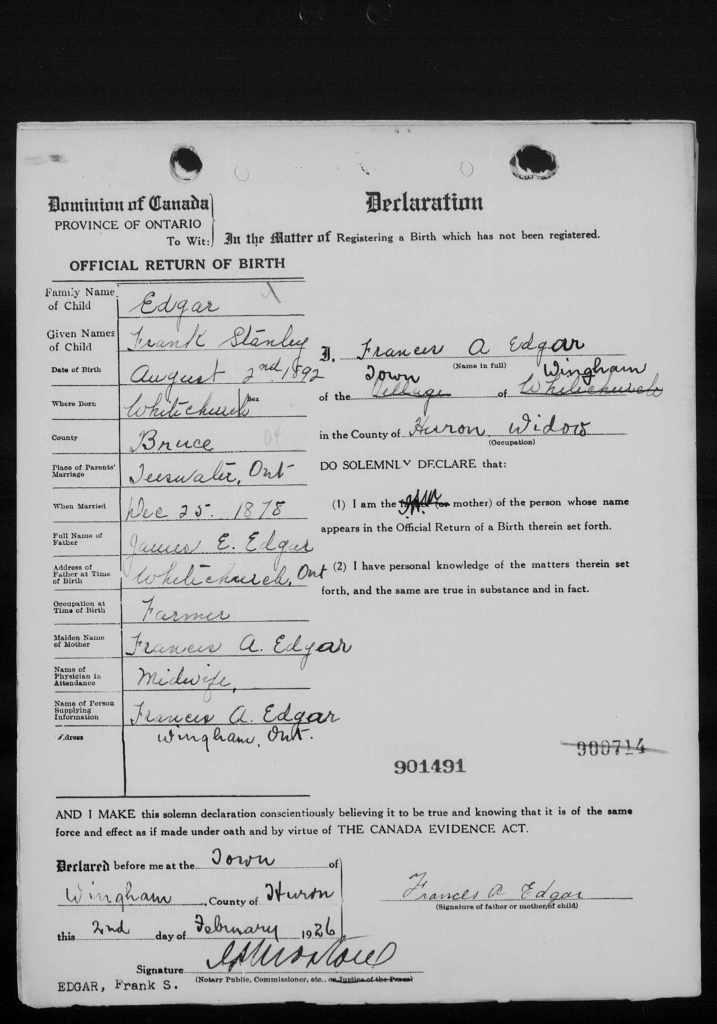 Dominion of Canada
PROVINCE OF ONTARIO
To Wit:
Declaration
In the Matter of Registering a Birth which has not been registered.
OFFICIAL RETURN OF BIRTH
Family Name of Child Edgar
Given Names of Child Frank Stanley
Date of Birth August 2nd 1892
Where Born Whitechurch
County Bruce
Place of Parents' Marriage Teeswater, Ont
When Married Dec 25. 1878
Full Name of Father James E. Edgar
Address of Father at Time of Birth Whitechurch, Ont
Occupation at Time of Birth Farmer
Maiden Name of Mother Frances A. Edgar
Name of Physician in Attendance Midwife,
Name of Person Supplying Information Frances A. Edgar
Address Wingham, Ont.
I, Frances A Edgar
(Name in full)
Town Wingham
of the Village of Whitechurch
in the County of Huron Widow
(Occupation)
DO SOLEMNLY DECLARE that:
(1) I am the (or mother) of the person whose name
appears in the Official Return of a Birth therein set forth.
(2) I have personal knowledge of the matters therein set
forth, and the same are true in substance and in fact.
900714
901491
AND I MAKE this solemn declaration conscientiously believing it to be true and knowing that it is of the same
force and effect as if made under oath and by virtue of THE CANADA EVIDENCE ACT.
Declared before me at the Town of
Wingham, County of Huron
this 2nd day of February 1926
Frances A Edgar
(Signature of father or mother of child)
Signature
(Notary Public, Commissioner, etc., or Justice of the Peace)
EDGAR, Frank S.